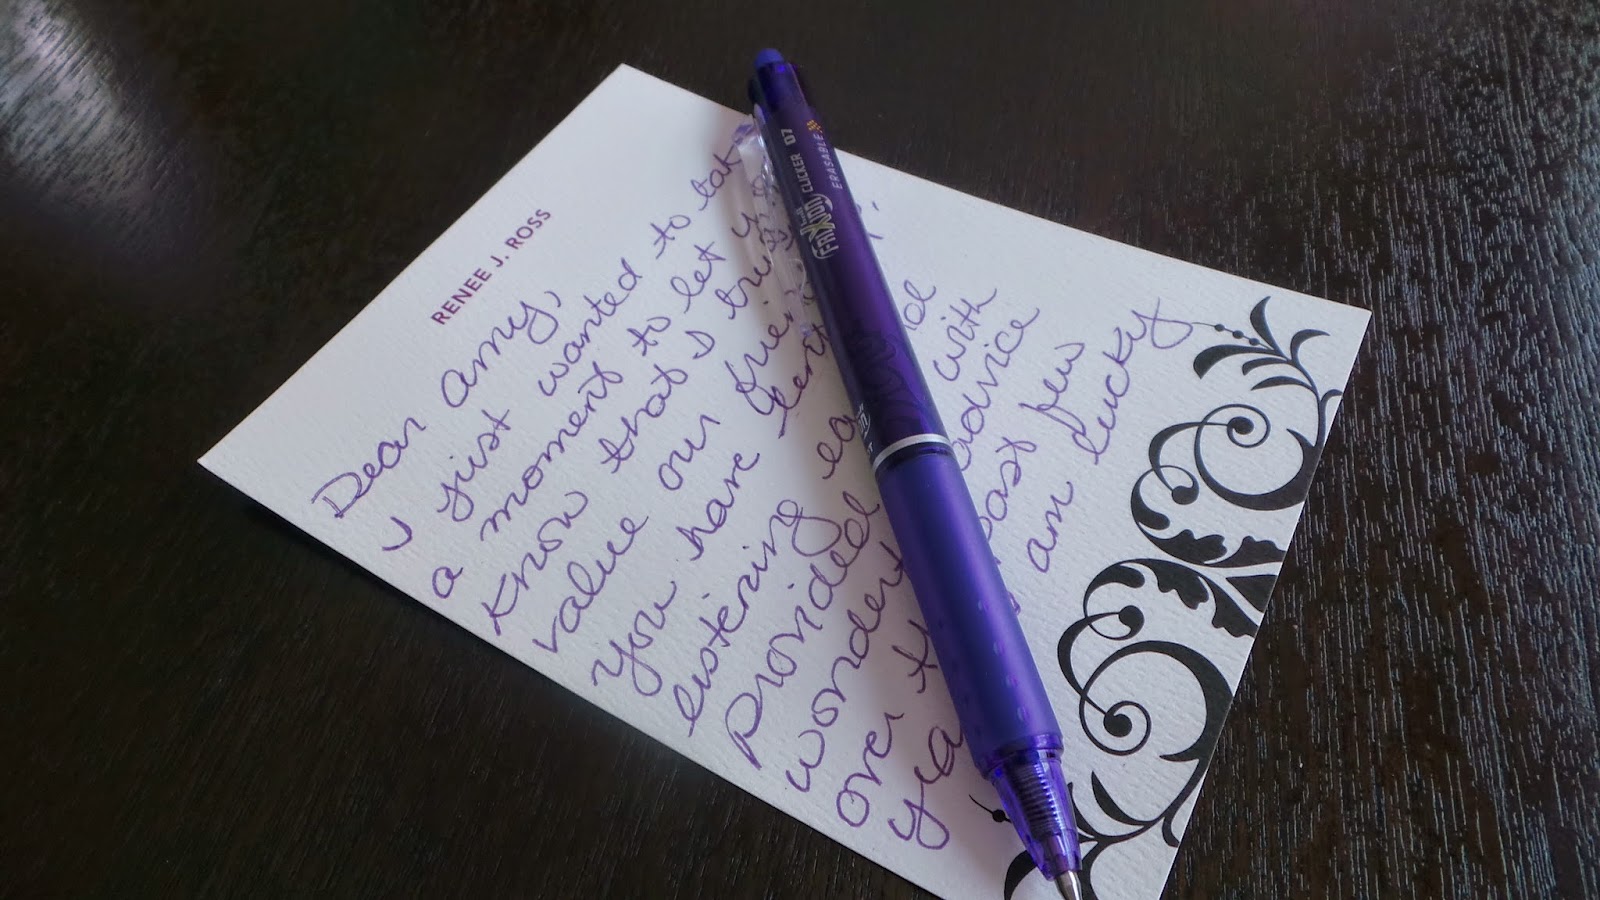 RENEE J. ROSS
Dear Amy,
I just wanted to tak
a moment to let y
know that I tru
value our frie
you have lent
listening ea
provided
wonder with
over advice
yea past few
am lucky
FRIXION CLICKER 07
ERASABLE